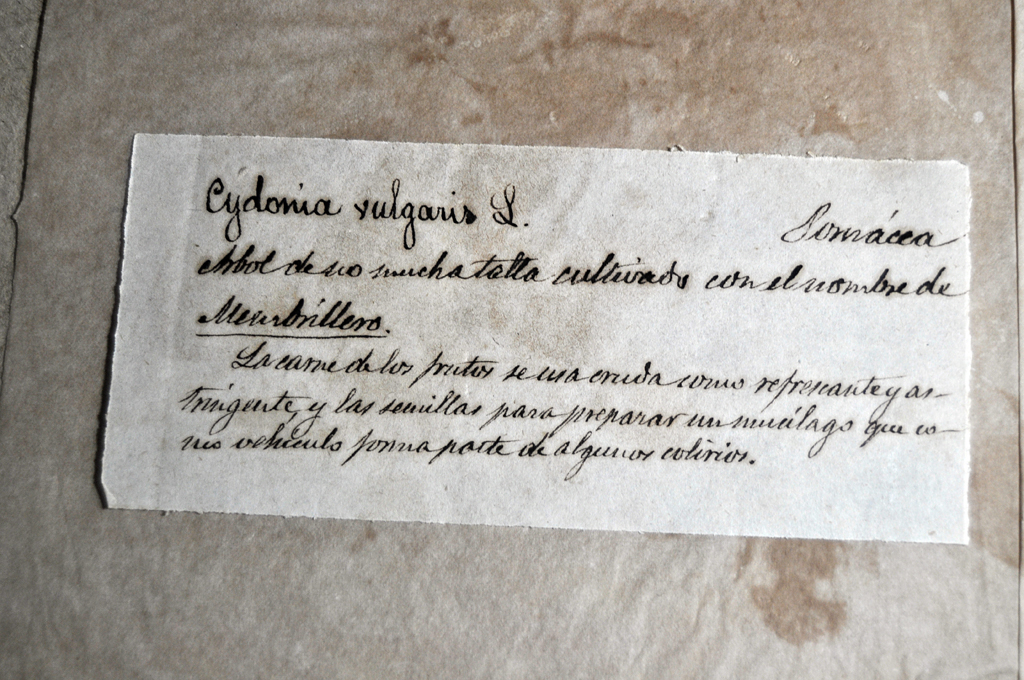 Cydonia vulgaris L.
Pomácea
Arbol de no mucha talla cultivado con el nombre de
Membrillero.
La carne de los frutos se usa cruda como refrescante y as-
tringente, y las semillas para preparar un mucílago que co-
mo vehículo forma parte de algunos colirios.